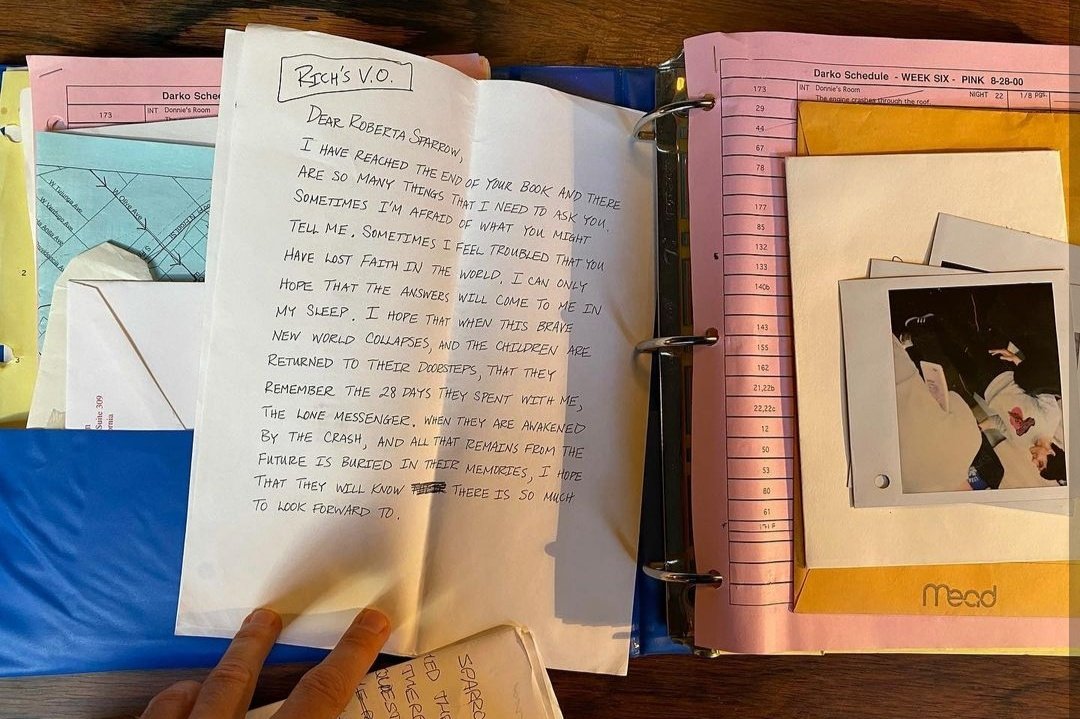 RICH'S V.O.
DEAR ROBERTA SPARROW,
I HAVE REACHED THE END OF YOUR BOOK AND THERE
ARE SO MANY THINGS THAT I NEED TO ASK YOU.
SOMETIMES I'M AFRAID OF WHAT YOU MIGHT
TELL ME. SOMETIMES I FEEL TROUBLED THAT YOU
HAVE LOST FAITH IN THE WORLD. I CAN ONLY
HOPE THAT THE ANSWERS WILL COME TO ME IN
MY SLEEP. I HOPE THAT WHEN THIS BRAVE
NEW WORLD COLLAPSES, AND THE CHILDREN ARE
RETURNED TO THEIR DOORSTEPS, THAT THEY
REMEMBER THE 28 DAYS THEY SPENT WITH ME,
THE LONE MESSENGER. WHEN THEY ARE AWAKENED
BY THE CRASH, AND ALL THAT REMAINS FROM THE
FUTURE IS BURIED IN THEIR MEMORIES, I HOPE
THAT THEY WILL KNOW THERE IS SO MUCH
TO LOOK FORWARD TO.
Darko Sche
173 INT Donnie's Room
W Olive Ave
2
3
Suite 309
Darko Schedule - WEEK SIX - PINK 8-28-00
173 INT Donnie's Room NIGHT 22 1/8 Pgs.
The engine crashes through the roof.
29
44
67
78
177
85
132
133
140b
143
155
162
21,22b
22,22c
12
50
53
80
61
171F
Mead
SPARRO
THERE